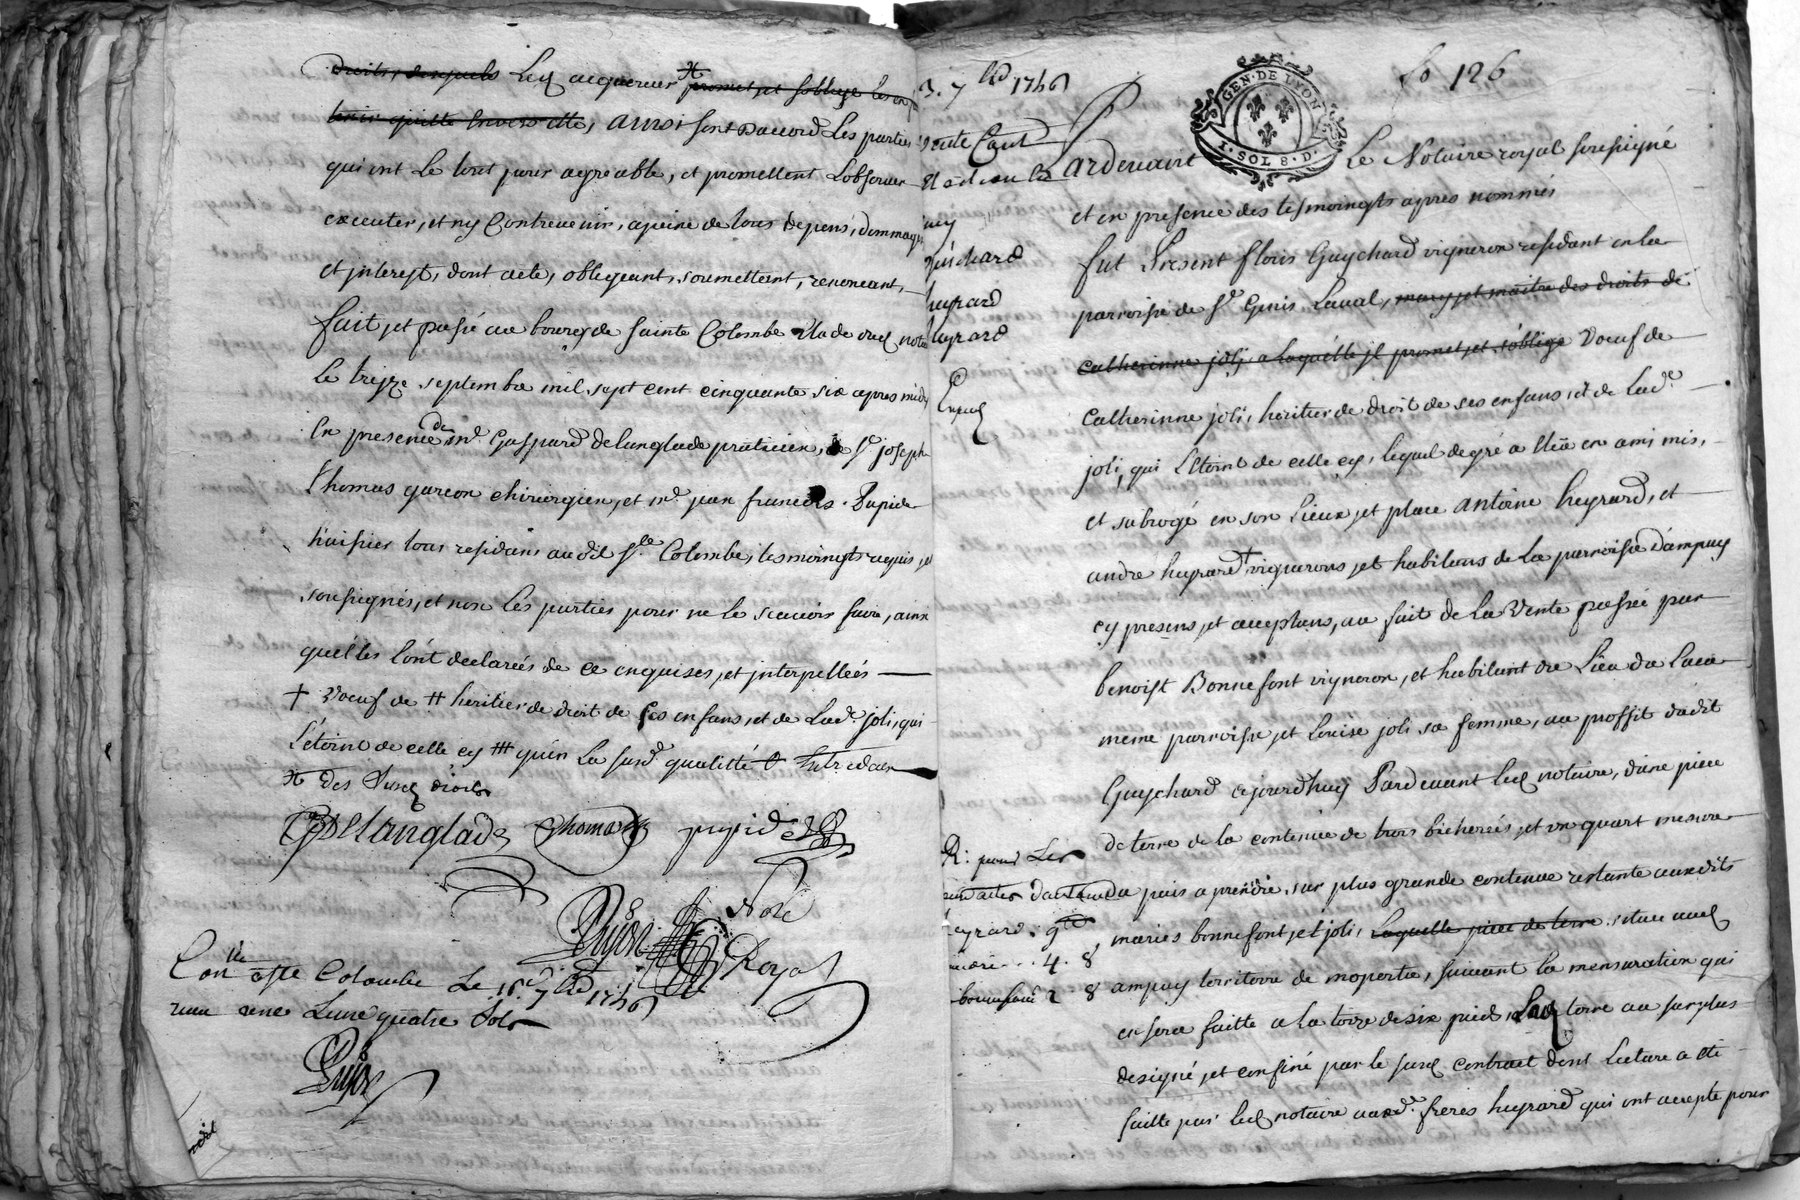 droits, desquels Led acquereur # promet et soblige les en
tenir quitte envers elle, ainsi sont daccord Les parties
qui ont Le tout pour agreable, et promettent Lobserver
executer, et ny Contrevenir, apeine de tous depens, dommages
et jnterest, dont acte, obligeant, soumettant, renoncant,
fait et passé au bourg de sainte Colombe etude dud notre
Le treize septembre mil sept cent cinquante six apres midy
En presence de mr Gaspard delanglade praticien, de sr joseph
Thomas garcon chirurgien, et mr jean francois Pupide
huissier tous residans audit ste Colombe, tesmoingts requis et
soussignés, et non Les parties pour ne le scavoir faire, ainsi
quelles lont declareés de ce enquises, et jnterpelleés
+ veuf de ++ heritier de droit de ses enfans, et de Lade joli, qui
L'étoint de celle cy +++ quen La susd qualitté
# des susd droits
Delanglade Thomas pupide
Dujon Notre Royal
Conlle a Ste Colombe Le 16e 7bre 1756
receu une Livre quatre sols
Dujon
3. 7bre 1756
fo 126
GEN. DE LYON
I. SOL 8. D.
vente Cant
guichard
heyrard
heyrard
Exped
Pardevant Le Notaire royal soussigné
et en presence des tesmoingts apres nommés
fut Present floris Guychard vigneron residant en la
parroisse de St Genis Laval, mary et maitre des droits de
catherinne joli, a laquelle jl promet et s'oblige veuf de
Catherinne joli, heritier de droit de ses enfans, et de Lade
joli, qui L'etoint de celle cy, lequel de gré a
et subrogé en son Lieux et place antoine heyrard, et
andre heyrard + vignerons et habitans de La parroisse d'ampuy
cy presens et acceptans, au fait de La Vente passée par
benoist Bonnefont vigneron, et habitant
meme parroisse et Louise joli sa femme, au proffit dudit
Guychard cejourdhuy Pardevant Led notaire, dune piece
de terre de la contenue de trois bicherées, et un quart mesure
du pais a prendre, sur plus grande contenue restante auxdits
maries bonnefont, et joli, Laquelle piece de terre située aud
ampuy territoire de mopertu, suivant la mensuration qui
en sera faitte a la toize de six pieds, Lad terre au surplus
designé, et confiné par le susd contract dont Lecture a eté
faitte par led notaire auxd. freres heyrard qui ont accepté pour
R: pour Les
heyrard
4. 8
bonnefont 2 8